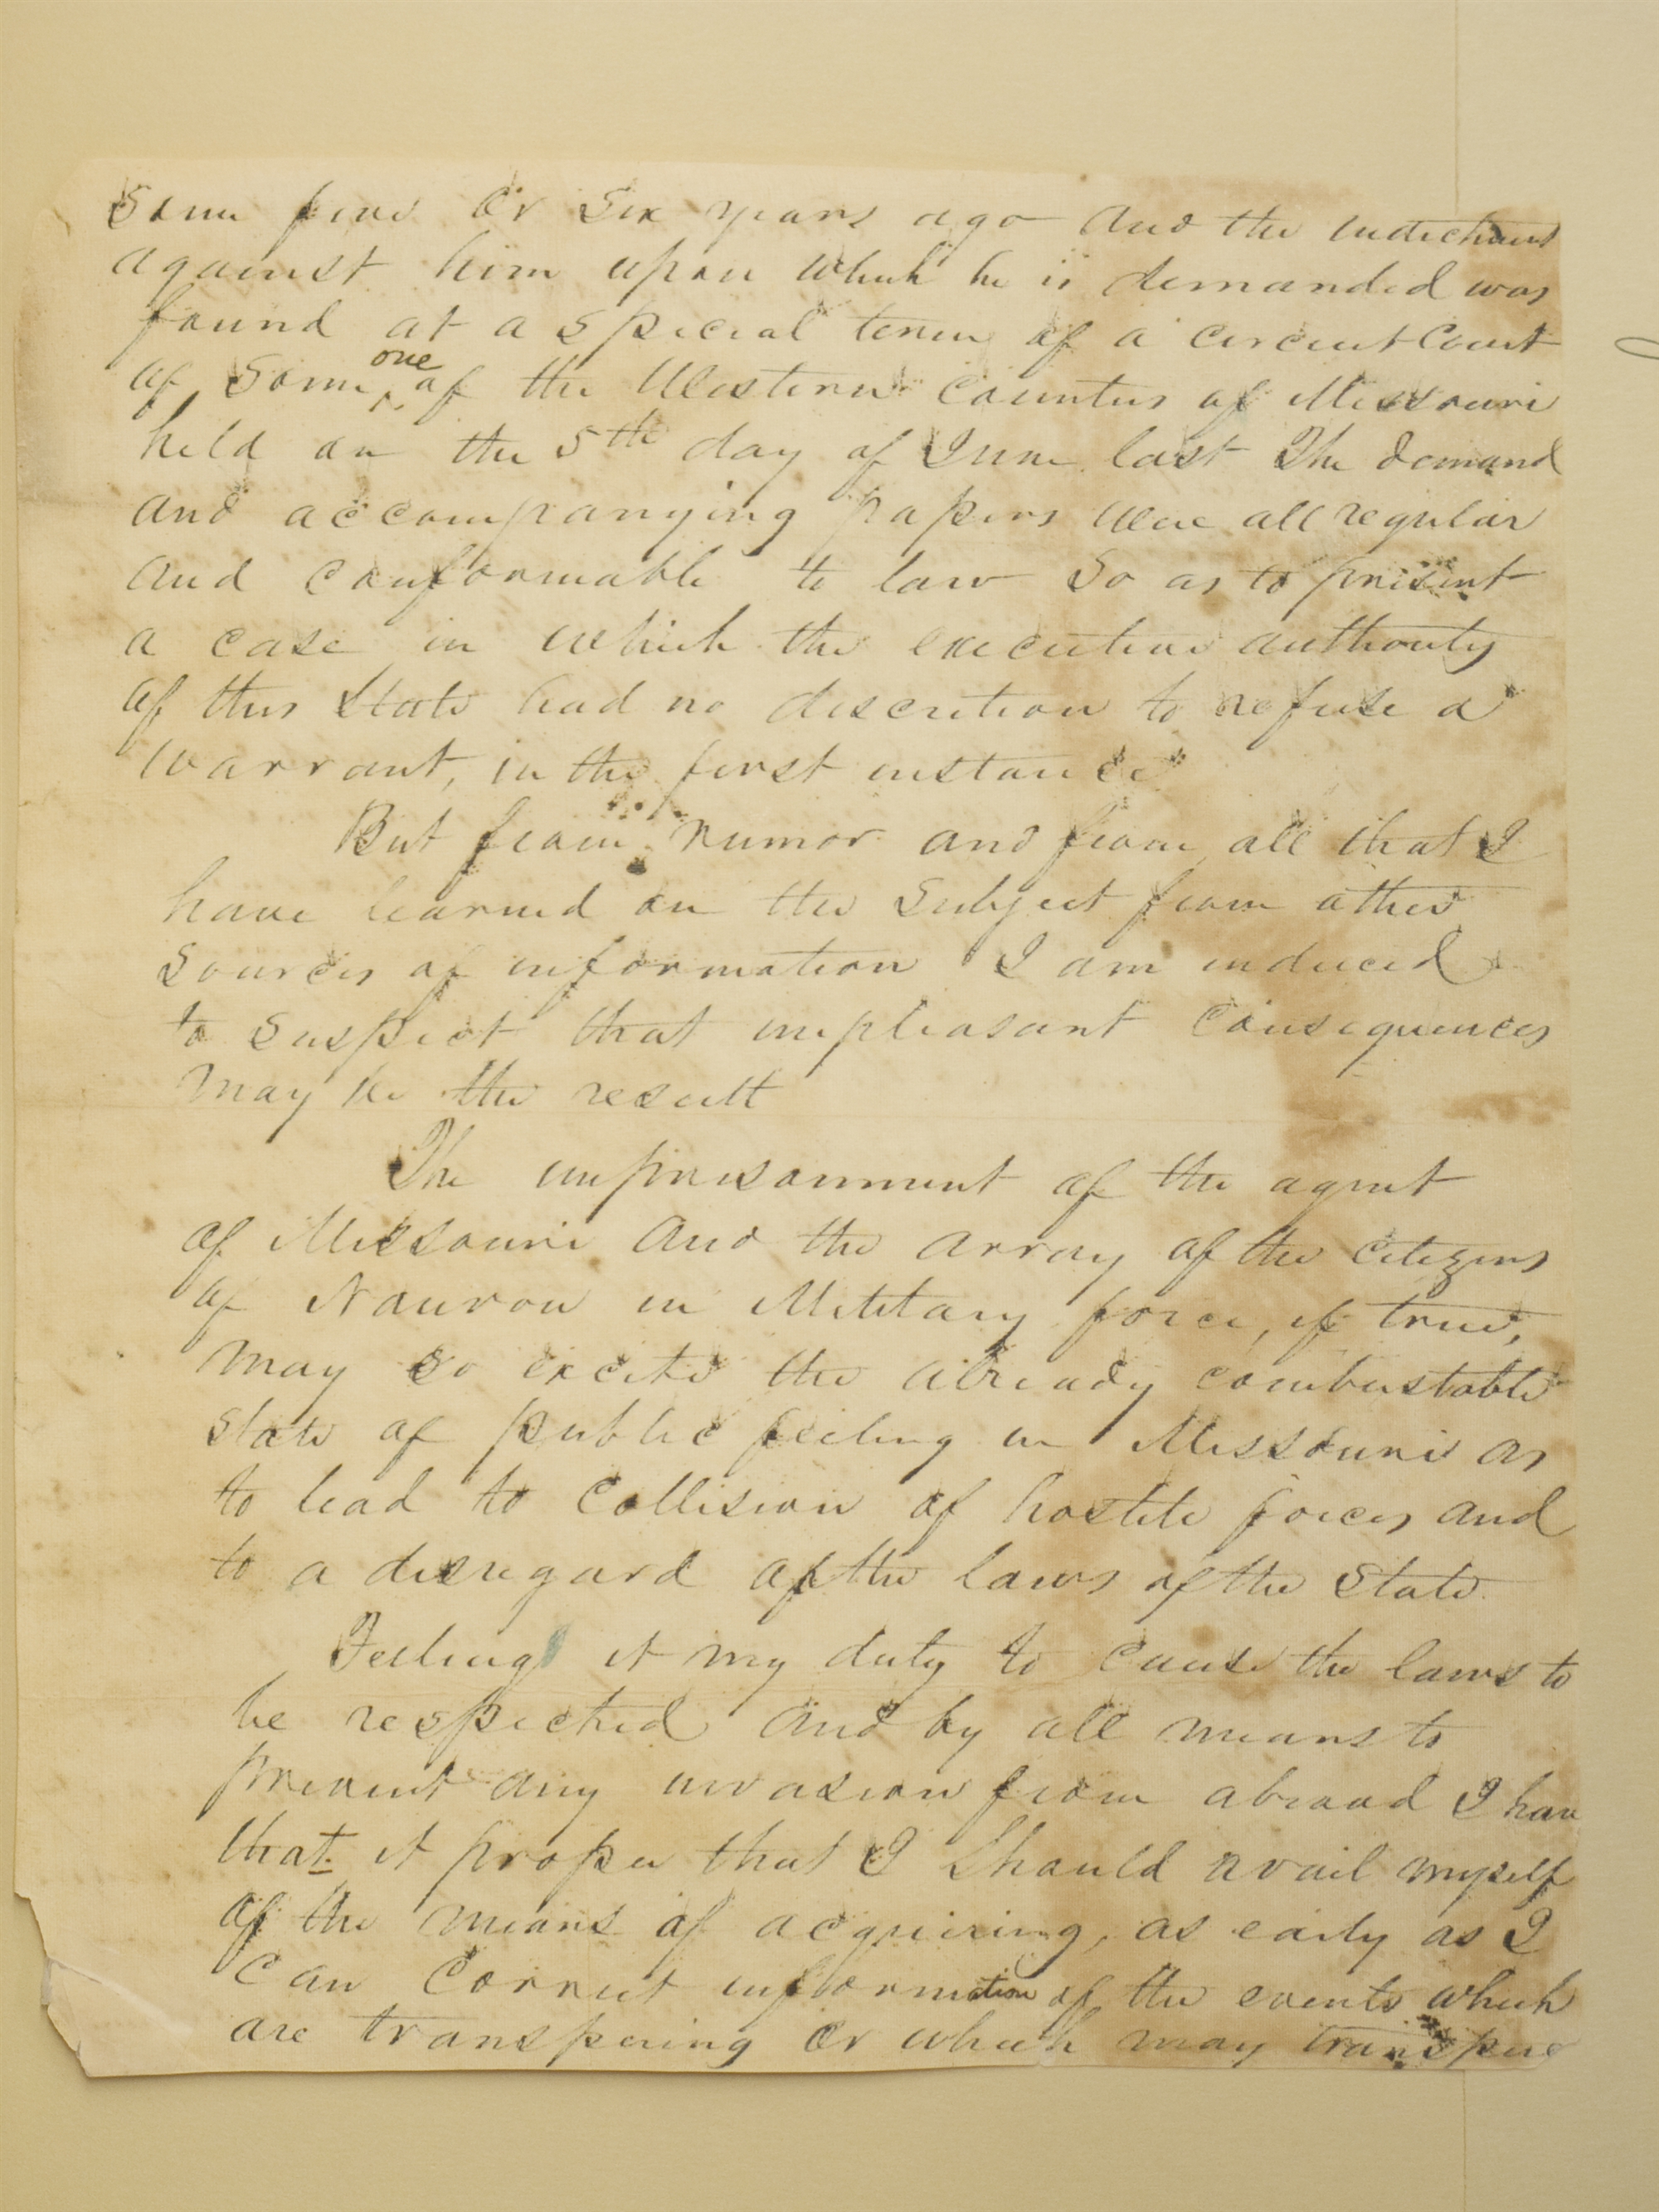 Some five or Six years ago and the indictment
against him upon which he is demanded was
found at a special term of a circuit Court
of Some one of the Western Counties of Missouri
held on the 5th day of June last The demand
and accompanying papers were all regular
and conformable to law So as to present
a case in which the executive authority
of this State had no discretion to refuse a
warrant, in the first instance
But from rumor and from all that I
have learned on the Subject from other
Sources of information I am induced
to Suspect that unpleasant Consequences
may be the result
The imprisonment of the agent
of Missouri and the array of the Citizens
of Nauvoo in Military force, if true,
may so excite the already combustable
state of public feeling in Missouri as
to lead to Collision of hostile forces and
to a disregard of the laws of the State
Feeling it my duty to cause the laws to
be respected and by all means to
prevent any invasion from abroad I have
that it proper that I Should avail myself
of the means of acquiring, as early as I
Can Correct information of the events which
are transpiring or which may transpire